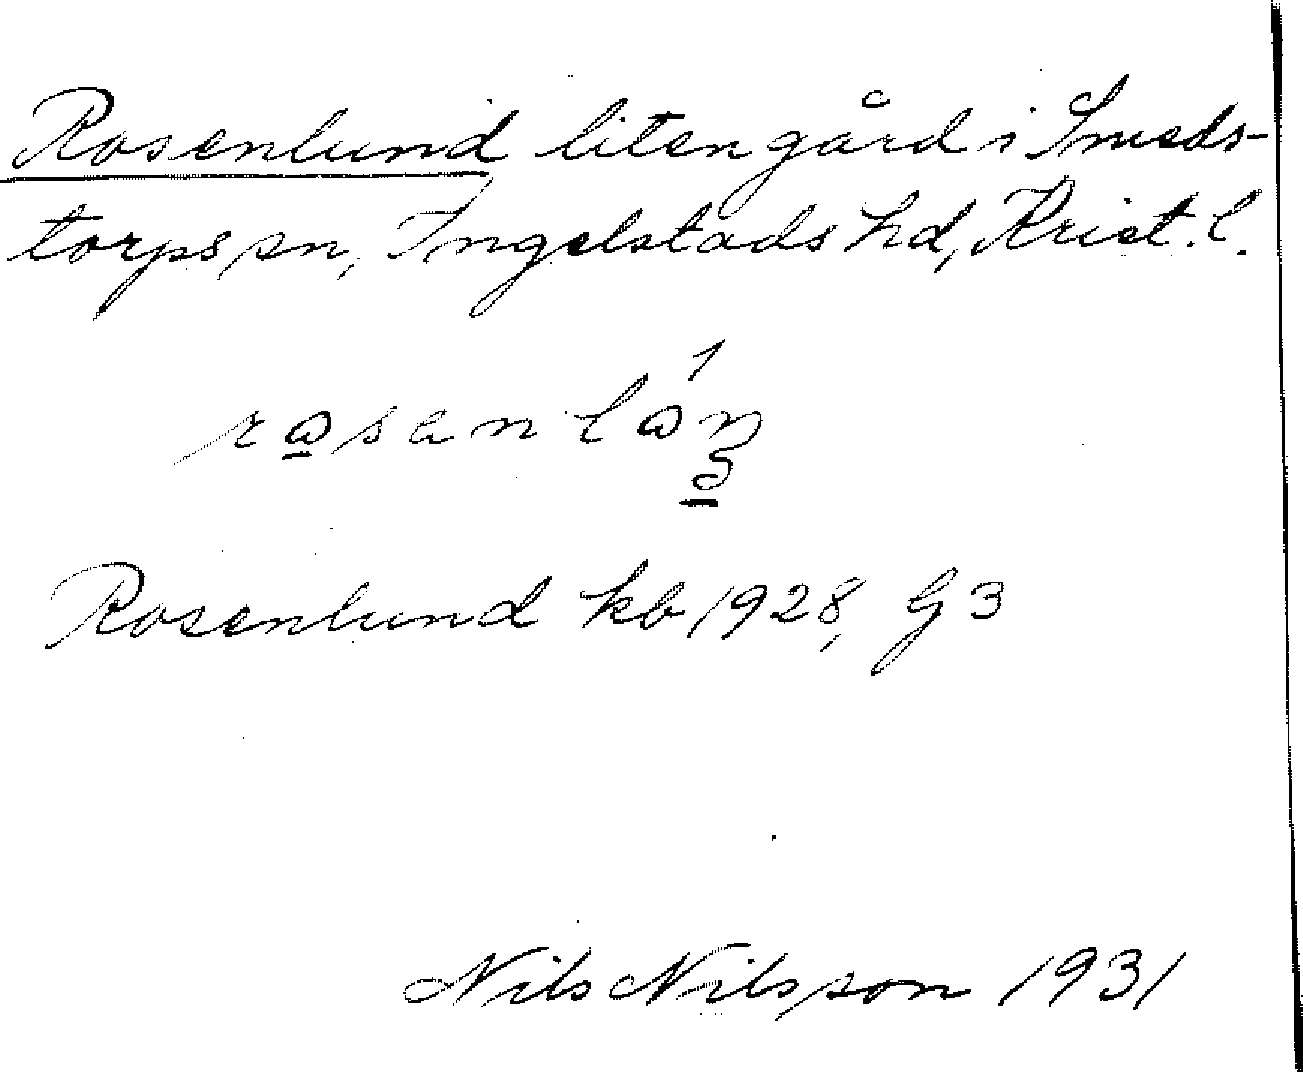 Rosenlund liten gård i Smeds-
torps sn, Ingelstads hd, Krist. l.
Rosenlund kb 1928, G3
Nils Nilsson 1931